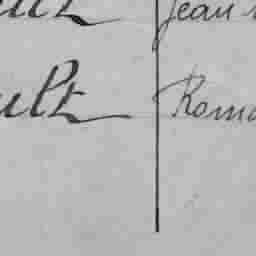 ult Jean
ult Roma